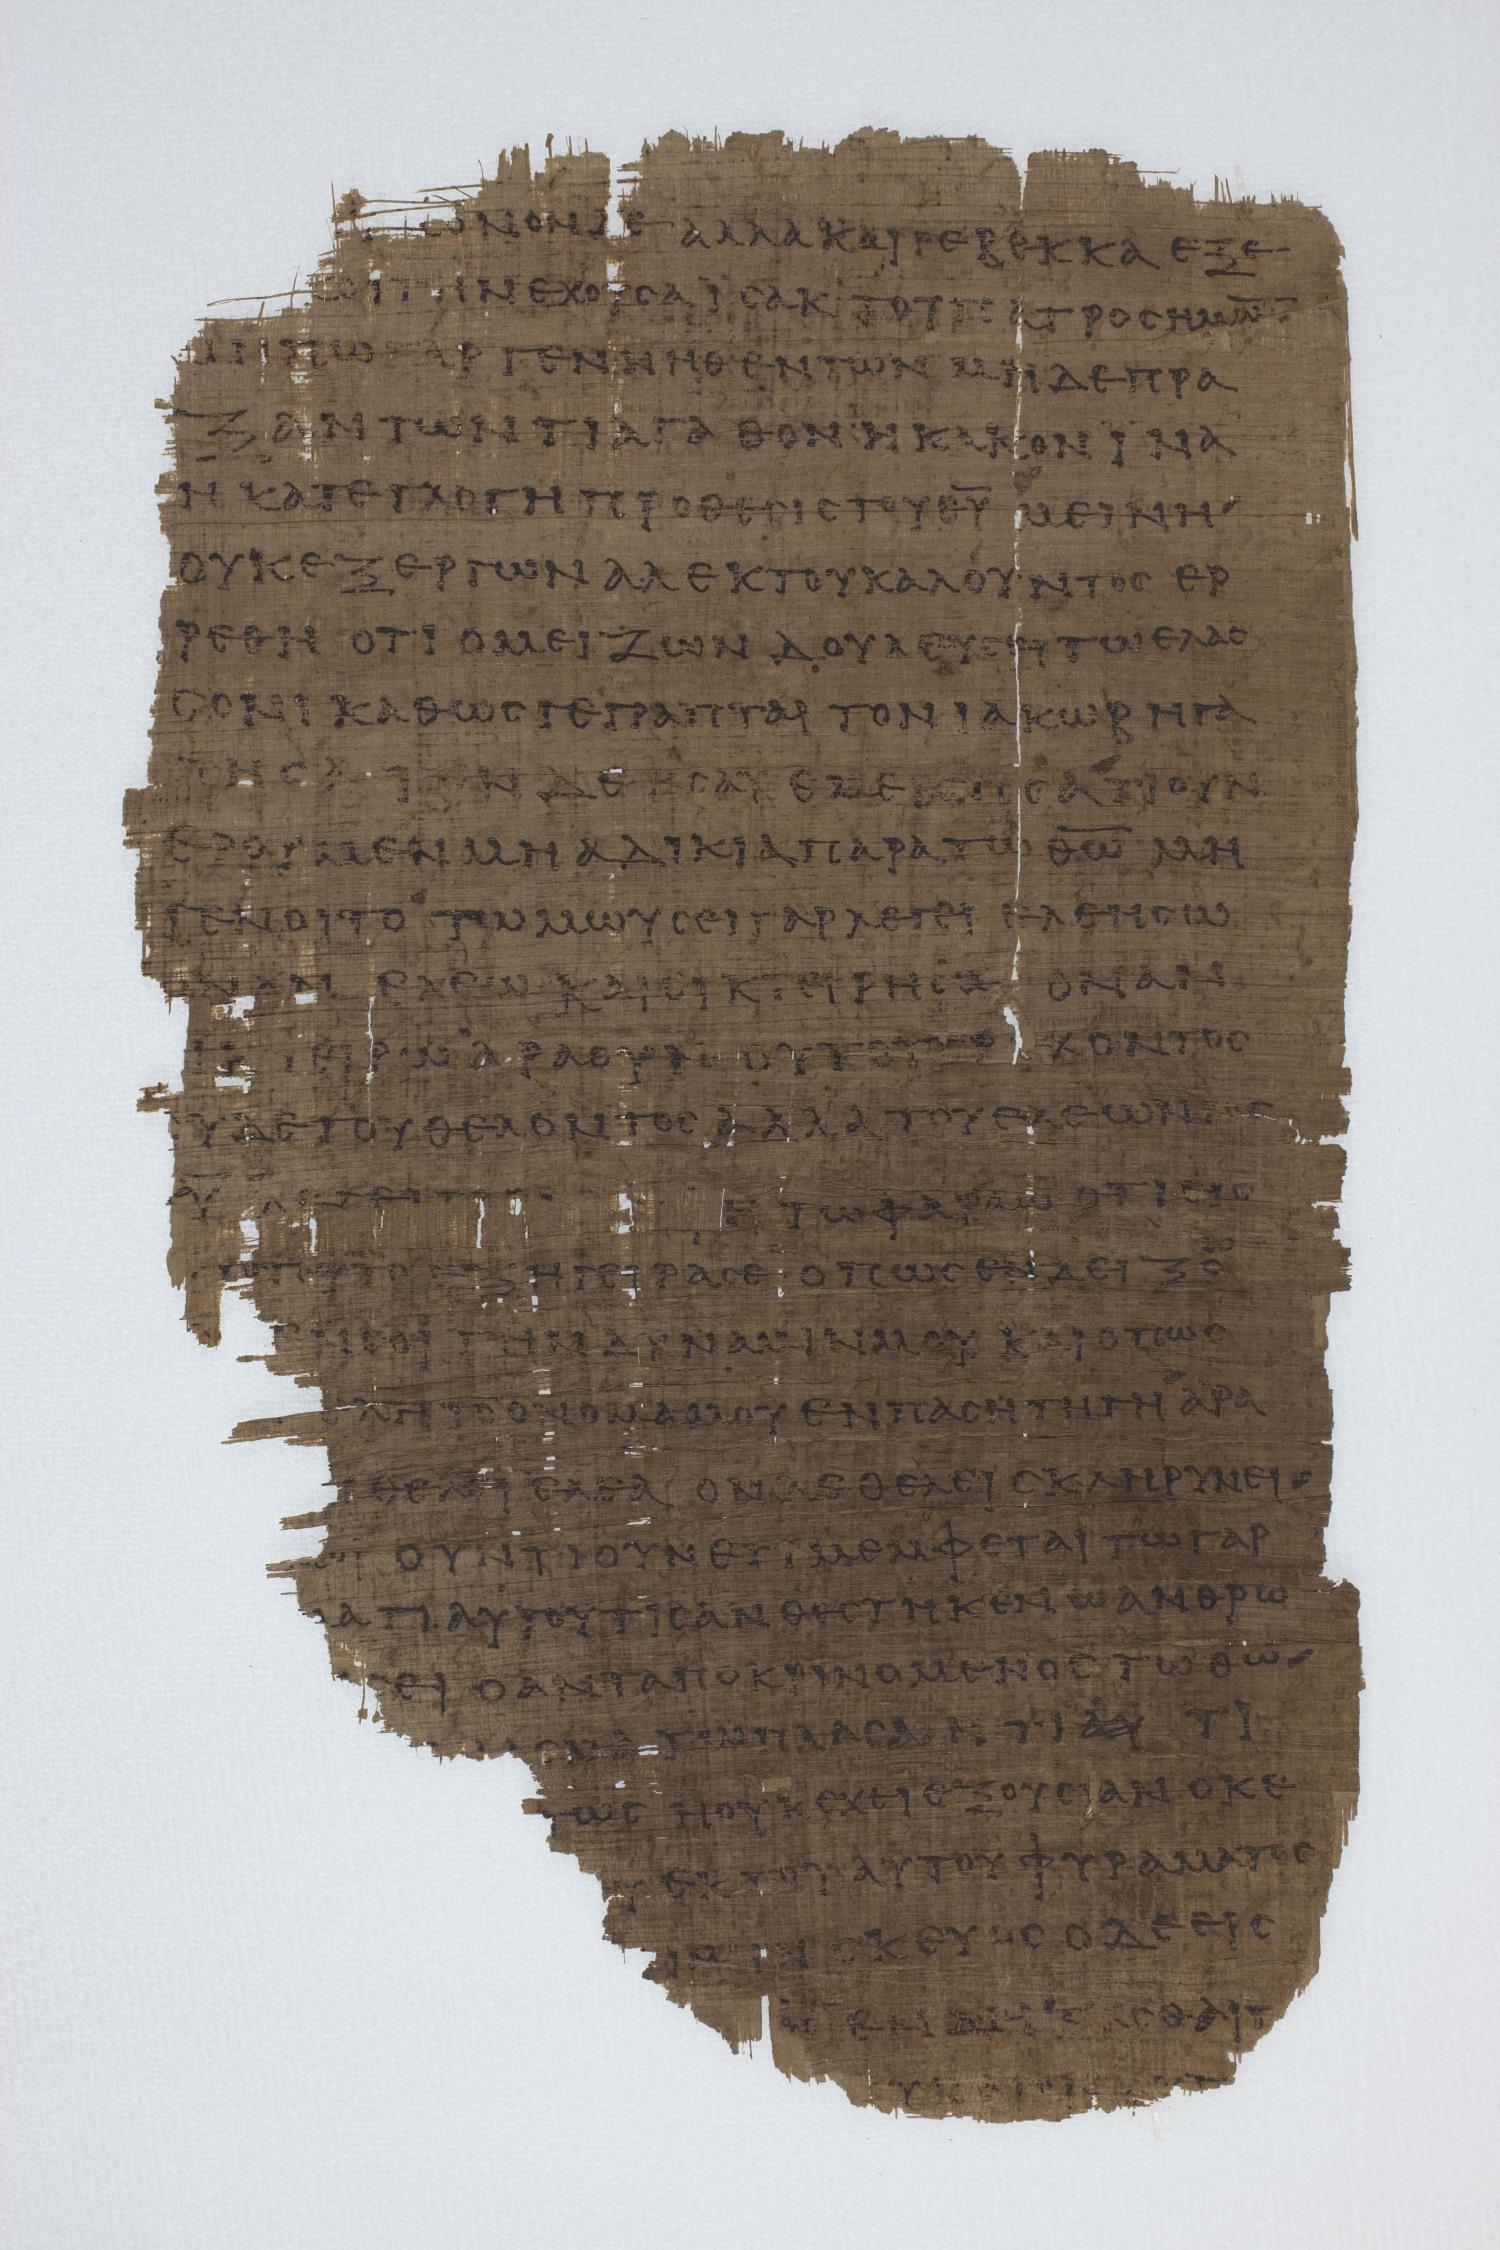 ΜΟΝΟΝ ΔΕ ΑΛΛΑ ΚΑΙ ΡΕΒΕΚΚΑ ΕΞ Ε
ΚΟΙΤΗΝ ΕΧΟΥΣΑ ΙΣΑΚ ΤΟΥ ΠΑΤΡΟΣ ΗΜΩ̅
ΜΗΠΩ ΓΑΡ ΓΕΝΝΗΘΕΝΤΩΝ ΜΗΔΕ ΠΡΑ
ΞΑΝΤΩΝ ΤΙ ΑΓΑΘΟΝ Η ΚΑΚΟΝ ΙΝΑ
Η ΚΑΤ ΕΓΛΟΓΗ ΠΡΟΘΕΣΙΣ ΤΟΥ Θ̅Υ̅ ΜΕΙΝΗ
ΟΥΚ ΕΞ ΕΡΓΩΝ ΑΛ ΕΚ ΤΟΥ ΚΑΛΟΥΝΤΟΣ ΕΡ
ΡΕΘΗ ΟΤΙ Ο ΜΕΙΖΩΝ ΔΟΥΛΕΥΣΕΙ ΤΩ ΕΛΑΣ
ΣΟΝΙ ΚΑΘΩΣ ΓΕΓΡΑΠΤΑΙ ΤΟΝ ΙΑΚΩΒ ΗΓΑ
ΠΗΣΑ ΤΟΝ ΔΕ ΗΣΑΥ ΕΜΕΙΣΗΣΑ ΤΙ ΟΥΝ
ΕΡΟΥΜΕΝ ΜΗ ΑΔΙΚΙΑ ΠΑΡΑ ΤΩ Θ̅Ω̅ ΜΗ
ΓΕΝΟΙΤΟ ΤΩ ΜΩΥΣΕΙ ΓΑΡ ΛΕΓΕΙ ΕΛΕΗΣΩ
ΟΝ ΑΝ ΕΛΕΩ ΚΑΙ ΟΙΚΤΕΙΡΗΣΩ ΟΝ ΑΝ
ΙΚΤΕΙΡΩ ΑΡΑ ΟΥΝ ΟΥ ΤΟΥ ΤΡΕΧΟΝΤΟΣ
ΟΥΔΕ ΤΟΥ ΘΕΛΟΝΤΟΣ ΑΛΛΑ ΤΟΥ ΕΛΕΩΝΤΟΣ
Θ̅Υ̅ ΛΕΓΕΙ Η ΤΩ ΦΑΡΑΩ ΟΤΙ ΕΙΣ
ΤΟΥΤΟ ΕΞΗΓΕΙΡΑ ΣΕ ΟΠΩΣ ΕΝΔΕΙΞΩ
ΕΝ ΣΟΙ ΤΗΝ ΔΥΝΑΜΙΝ ΜΟΥ ΚΑΙ ΟΠΩΣ
ΕΛΗ ΤΟ ΟΝΟΜΑ ΜΟΥ ΕΝ ΠΑΣΗ ΤΗ ΓΗ ΑΡΑ
ΘΕΛΕΙ ΕΛΕΑ ΟΝ ΔΕ ΘΕΛΕΙ ΣΚΛΗΡΥΝΕΙ
ΟΥΝ ΤΙ ΟΥΝ ΕΤΙ ΜΕΜΦΕΤΑΙ ΤΩ ΓΑΡ
ΜΑΤΙ ΑΥΤΟΥ ΤΙΣ ΑΝΘΕΣΤΗΚΕΝ Ω ΑΝΘΡΩ
ΕΙ Ο ΑΝΤΑΠΟΚΡΙΝΟΜΕΝΟΣ ΤΩ ΘΩ
ΑΣΜΑ ΤΩ ΠΛΑΣΑΝΤΙ ΤΙ
ΤΩΣ Η ΟΥΚ ΕΧΕΙ ΕΞΟΥΣΙΑΝ Ο ΚΕ
ΕΚ ΤΟΥ ΑΥΤΟΥ ΦΥΡΑΜΑΤΟΣ
ΣΚΕΥΟΣ Ο ΔΕ ΕΙΣ
ΕΝΔΕΙΞΑΣΘΑΙ Τ